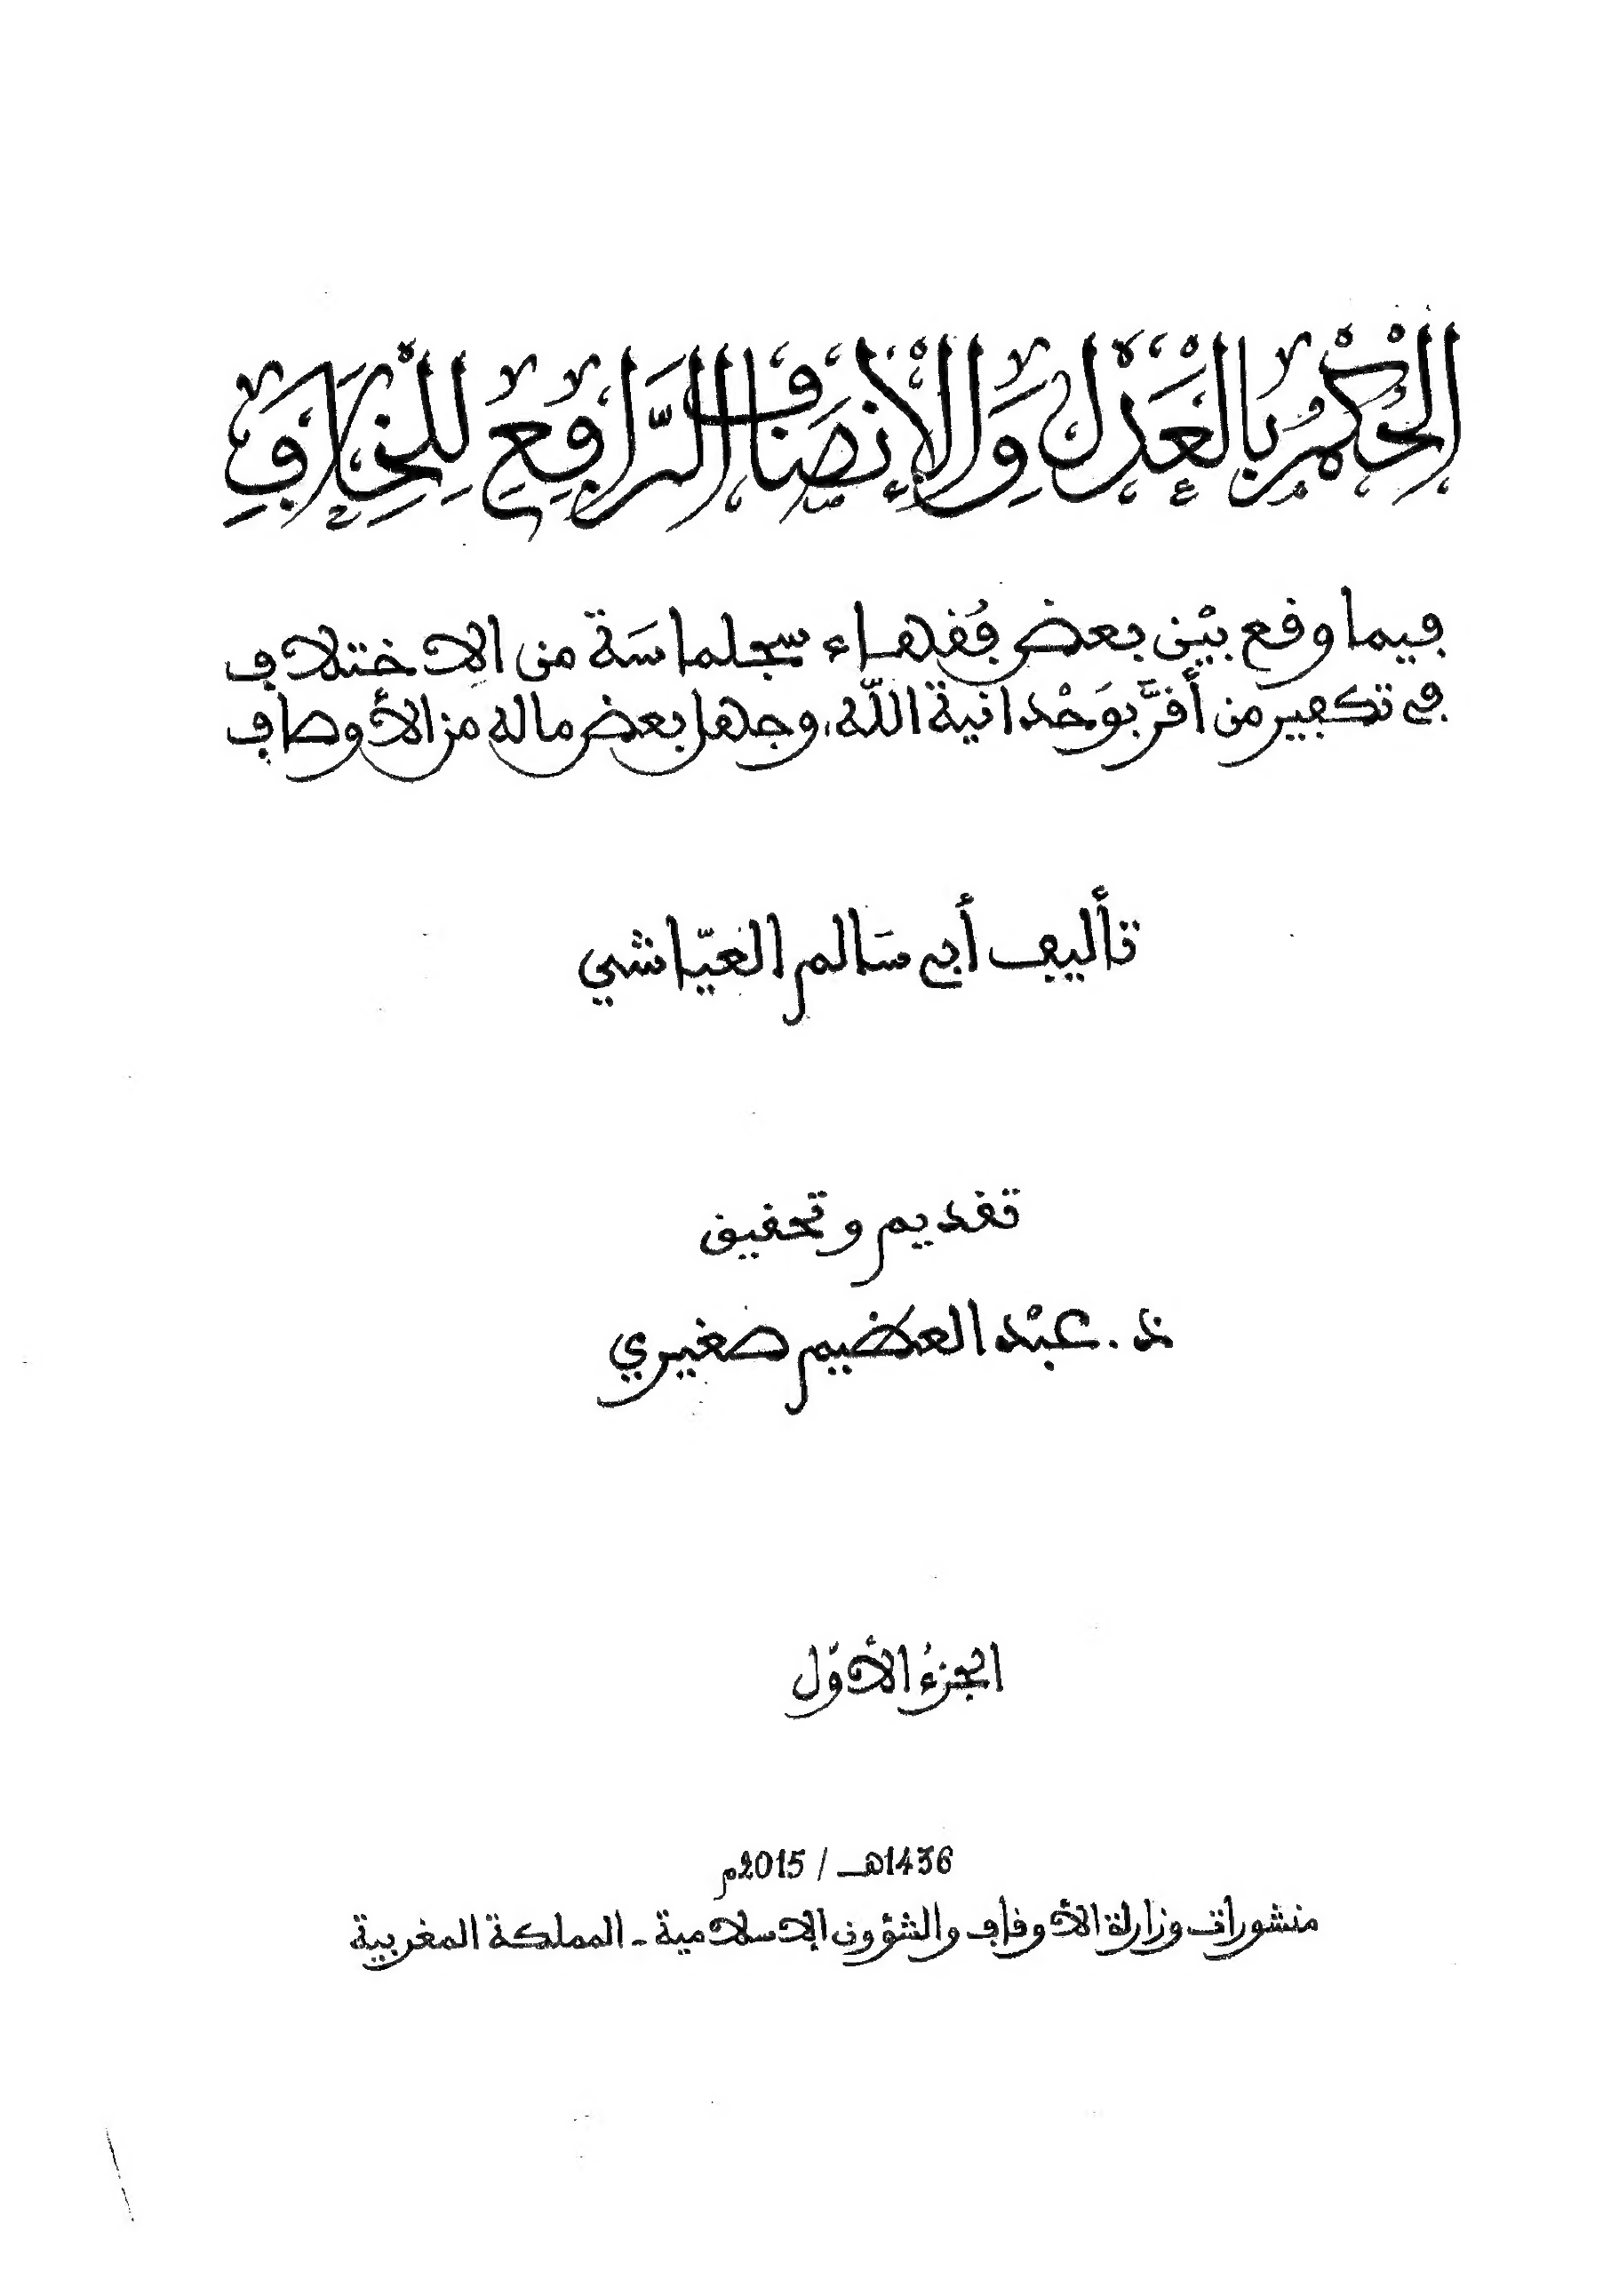 الْحُكْمُ بِالْعَدْلِ وَالْإِنْصَافِ الرَّافِعُ لِلْخِلَافِ
فيما وقع بيْن بعض فُقهاء سجلماسَة من الاِختلاف
في تكفير من أقرَّ بوَحْدانية اللّه، وجهل بعض ماله من الأوصاف
تأليف أبي سَالم العيّاشي
تقديم وتحقيق
د. عبْد العظيم صغيري
الجزءُ الأوّل
1436هـ / 2015م
منشورات وزارة الأوقاف والشؤون الإسلامية - المملكة المغربية